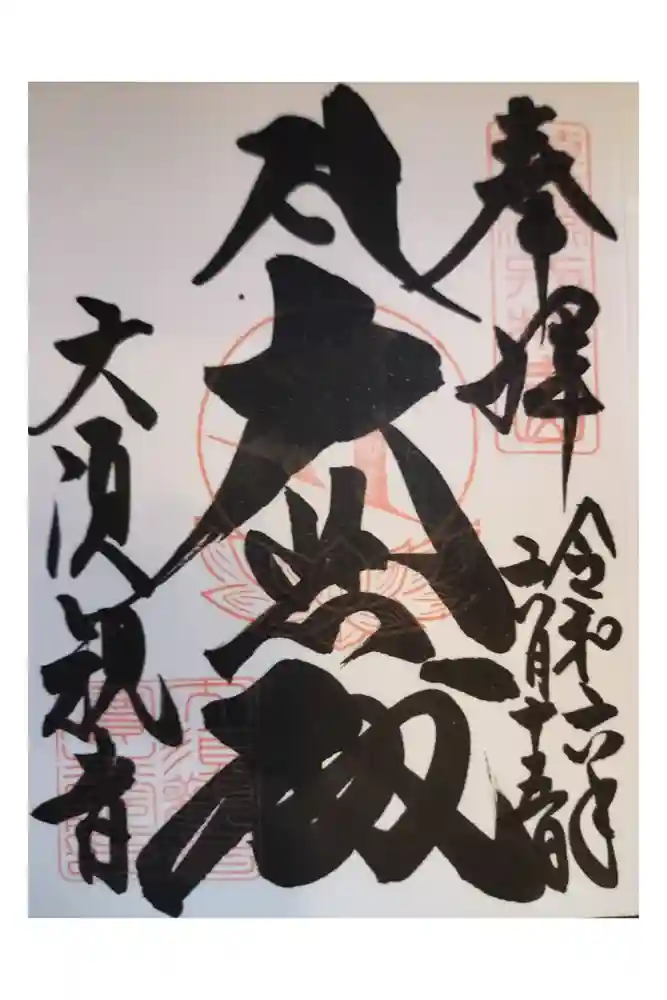 奉拝
令和六年
月十五日
大悲殿
大須観音